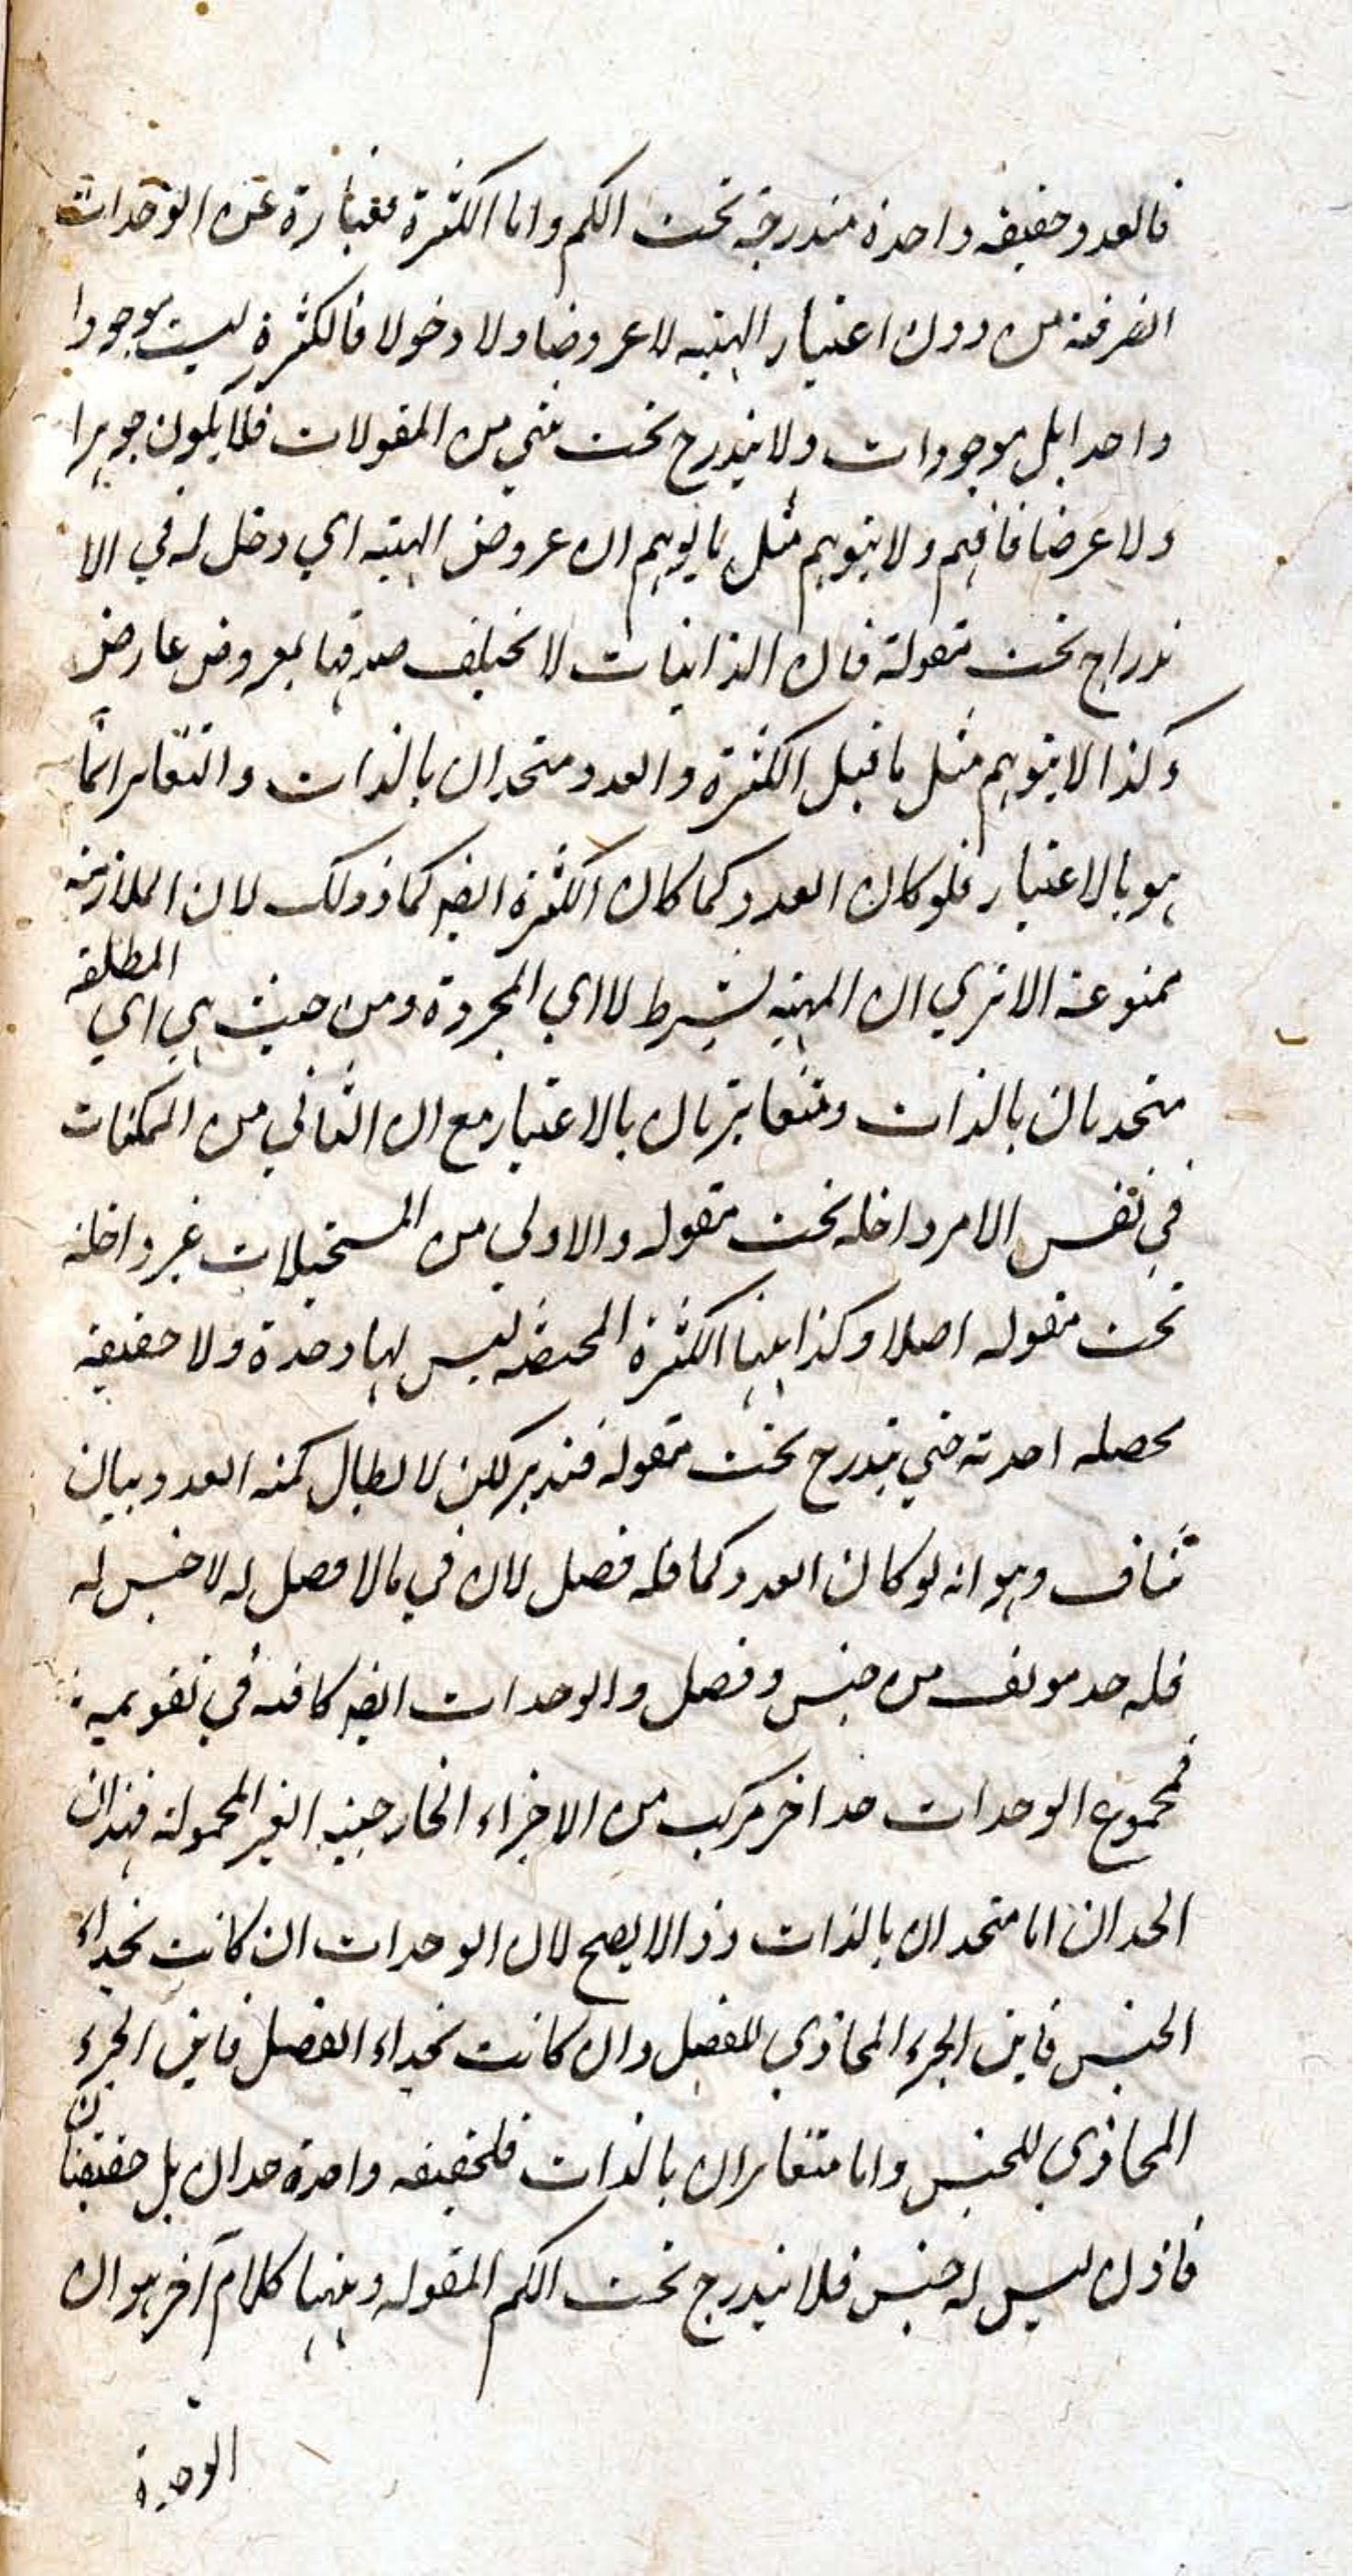 فالعدد حقيقة واحدة مندرجة تحت الكم واما الكثرة فعبارة عن الوحدات
الصرفة من دون اعتبار الهيئة لا عروضا ولا دخولا فالكثرة ليست موجودا
واحدا بل موجودات ولا يندرج تحت شي من المقولات فلا يكون جوهرا
ولا عرضا فافهم ولا يتوهم مثل ما يوهم ان عروض الهيئة اي دخل له في الا
ندراج تحت مقولة فان الذاتيات لا تختلف صدقها بعروض عارض
وكذا لا يتوهم مثل ما قيل الكثرة والعدد متحدان بالذات والتغاير انما
هو بالاعتبار فلو كان العدد كما كان الكثرة ايضه كما وذلك لان الملازمة
ممنوعة الا تري ان المهية بشرط لا اي المجردة ومن حيث هي اي المطلقه
متحدتان بالذات ومتغايرتان بالاعتبار مع ان الثاني من الممكنات
في نفس الامر داخله تحت مقوله والاولي من المستحيلات غير داخلة
تحت مقوله اصلا وكذا ههنا الكثرة المحضه ليس لها وحدة ولا حقيقة
محصله احدية حتي يندرج تحت مقوله فتدبر لكن لابطال كمية العدد بيان
شاف وهو انه لو كان العدد كما فله فصل لان في ما لا فصل له لا جنس له
فله حد مولف من جنس وفصل والوحدات ايضه كافية في تقويمه
فمجموع الوحدات حد اخر مركب من الاجزاء الخارجية الغير المحمولة فهذان
الحدان اما متحدان بالذات وذا لا يصح لان الوحدات ان كانت بحذاء
الجنس فاين الجزء المحاذي للفصل وان كانت بحذاء الفصل فاين الجزء
المحاذي للجنس واما متغايران بالذات فلحقيقه واحدة حدان بل حقيقتان
فاذن ليس له جنس فلا يندرج تحت الكم المقوله وههنا كلام آخر هو ان
الوحدة